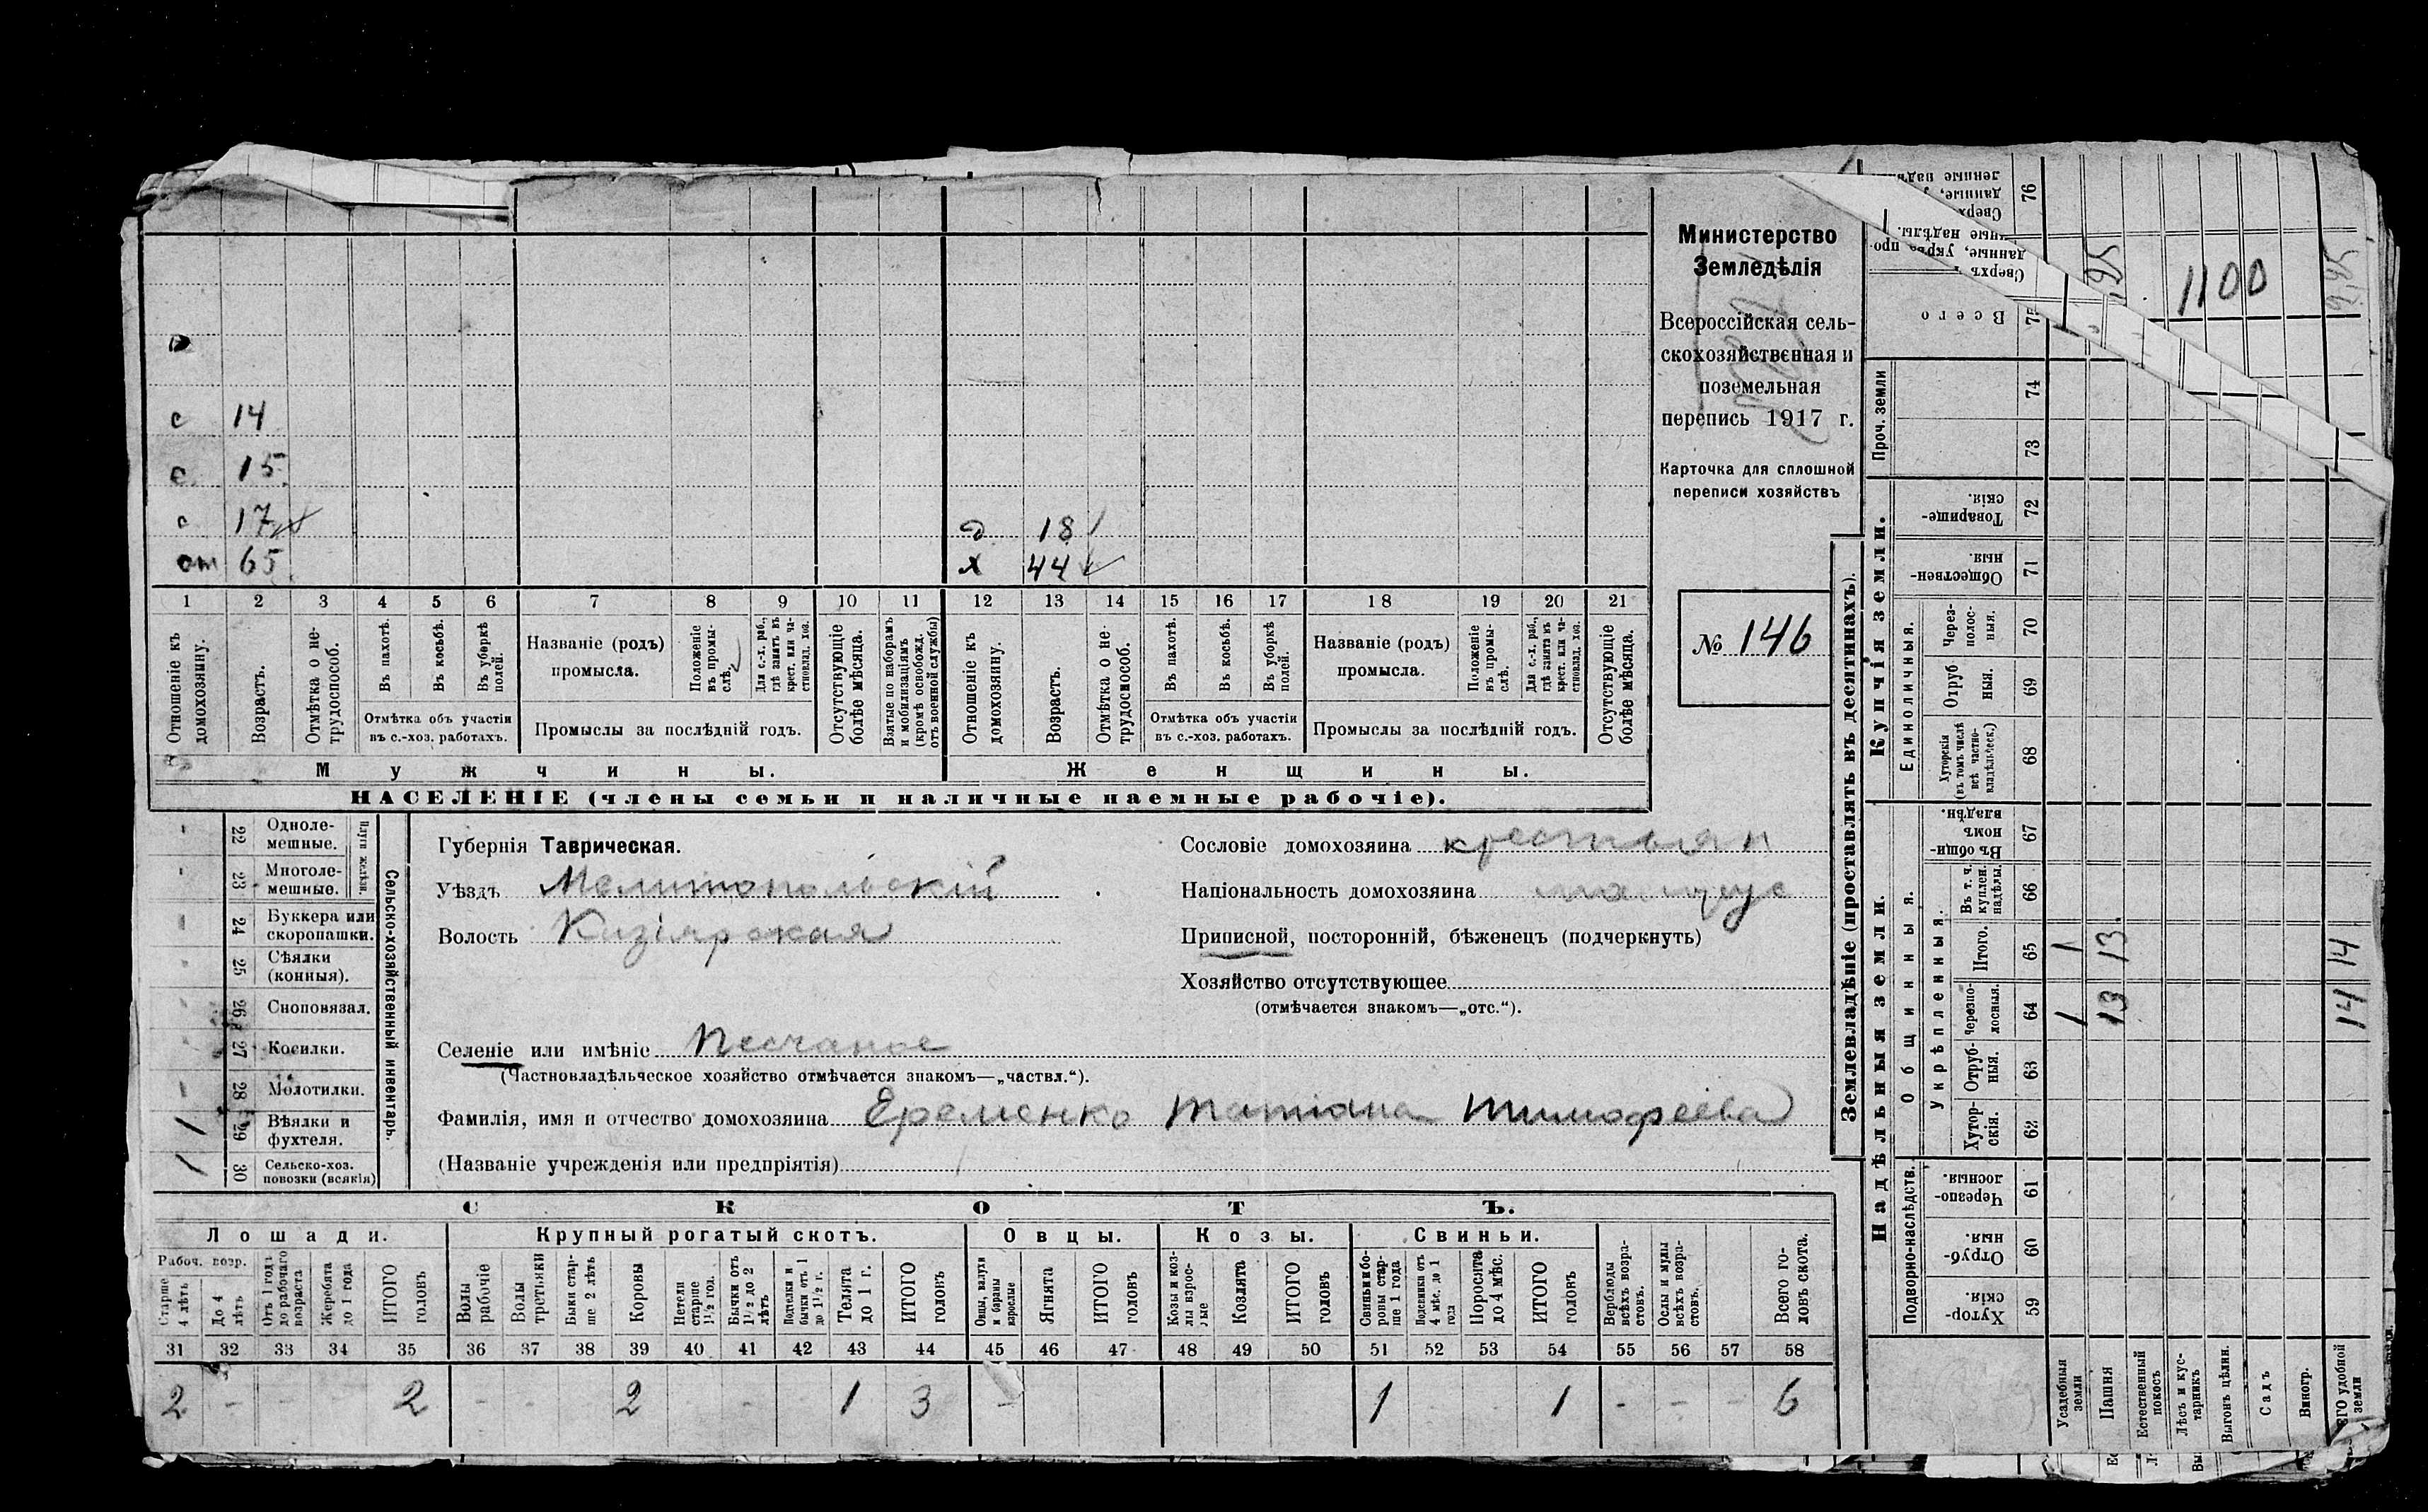 Министерство
Земледѣлія
Всероссійская сель-
скохозяйственная и
поземельная
перепись 1917 г.
Карточка для сплошной
переписи хозяйствъ
№ 146
с 14
с 15
с 17
от 65
д 18
х 44
1 2 3 4 5 6 7 8 9 10 11 12 13 14 15 16 17 18 19 20 21
Отношеніе къ домохозяину.
Возрастъ.
Отмѣтка о не-трудоспособ.
Въ пахотѣ.
Въ косьбѣ.
Въ уборкѣ полей.
Отмѣтка объ участіи
въ с.-хоз. работахъ.
Названіе (родъ)
промысла.
Положеніе въ промы-слѣ.
Для с.-х. раб., гдѣ занятъ въ крест. или ча-стновлад. хоз.
Промыслы за послѣдній годъ.
Отсутствующіе болѣе мѣсяца.
Взятые по наборамъ и мобилизаціямъ (кромѣ освобожд. отъ военной службы)
Отношеніе къ домохозяину.
Возрастъ.
Отмѣтка о не-трудоспособ.
Въ пахотѣ.
Въ косьбѣ.
Въ уборкѣ полей.
Отмѣтка объ участіи
въ с.-хоз. работахъ.
Названіе (родъ)
промысла.
Положеніе въ промы-слѣ.
Для с.-х. раб., гдѣ занята въ крест. или ча-стновлад. хоз.
Промыслы за послѣдній годъ.
Отсутствующіе болѣе мѣсяца.
Мужчины.
Женщины.
НАСЕЛЕНІЕ (члены семьи и наличные наемные рабочіе).
Сельско-хозяйственный инвентарь.
Плуги желѣзн.
22 Одноле-мешные.
23 Многоле-мешные.
24 Буккера или скоропашки.
25 Сѣялки (конныя).
26 Сноповязал.
27 Косилки.
28 Молотилки.
1 29 Вѣялки и фухтеля.
1 30 Сельско-хоз. повозки (всякія)
Губернія Таврическая.
Уѣздъ Мелитопольскій
Волость Кизіярская
Селеніе или имѣніе Песчаное
(Частновладѣльческое хозяйство отмѣчается знакомъ—„частвл.“).
Фамилія, имя и отчество домохозяина Еременко Татіана Тимофеева
(Названіе учрежденія или предпріятія)
Сословіе домохозяина крестьян
Національность домохозяина
Приписной, посторонній, бѣженецъ (подчеркнуть)
Хозяйство отсутствующее
(отмѣчается знакомъ—„отс.“).
СКОТЪ.
Лошади. Крупный рогатый скотъ. Овцы. Козы. Свиньи.
Рабоч. возр.
Старше 4 лѣтъ
До 4 лѣтъ
Отъ 1 года до рабочаго возраста
Жеребята до 1 года
ИТОГО головъ
Волы рабочіе
Волы третьяки
Быки стар-ше 2 лѣтъ
Коровы
Нетели старше 1½ год.
Бычки отъ 1½ до 2 лѣтъ
Подтелки и бычки отъ 1 до 1½ г.
Телята до 1 г.
ИТОГО головъ
Овцы, валухи и бараны взрослые
Ягнята
ИТОГО головъ
Козы и коз-лы взрос-лые
Козлята
ИТОГО головъ
Свиньи и бо-ровы стар-ше 1 года
Подсвинки отъ 4 мѣс. до 1 года
Поросята до 4 мѣс.
ИТОГО головъ
Верблюды всѣхъ возра-стовъ.
Ослы и мулы всѣхъ возра-стовъ.
Всего го-ловъ скота.
31 32 33 34 35 36 37 38 39 40 41 42 43 44 45 46 47 48 49 50 51 52 53 54 55 56 57 58
2 - - - 2 - - - 2 - - 1 3 - 1 1 - - - 6
Землевладѣніе (проставлять въ десятинахъ).
Надѣльныя земли.
Купчія земли.
Проч. земли
Подворно-наслѣдств.
Общинныя.
Укрѣпленныя.
Единоличныя.
Хутор-скія. 59
Отруб-ныя. 60
Черезпо-лосныя. 61
Хутор-скія. 62
Отруб-ныя. 63
Черезпо-лосныя. 64
Итого. 65
Въ т. ч. куплен. надѣлы. 66
Въ общи-номъ владѣн. 67
Хуторскія (въ томъ числѣ всѣ частно-владѣльческ.) 68
Отруб ныя. 69
Через-полос-ныя. 70
Обществен-ныя. 71
Товарище-скія. 72
73
74
Всего 75
76
Усадебныя земли 1 1
Пашня 13 13
Естественный покосъ
Лѣсъ и кус-тарникъ
Выгонъ цѣлин.
Садъ
Виногр.
ЕГО удобной земли 14 14
1100